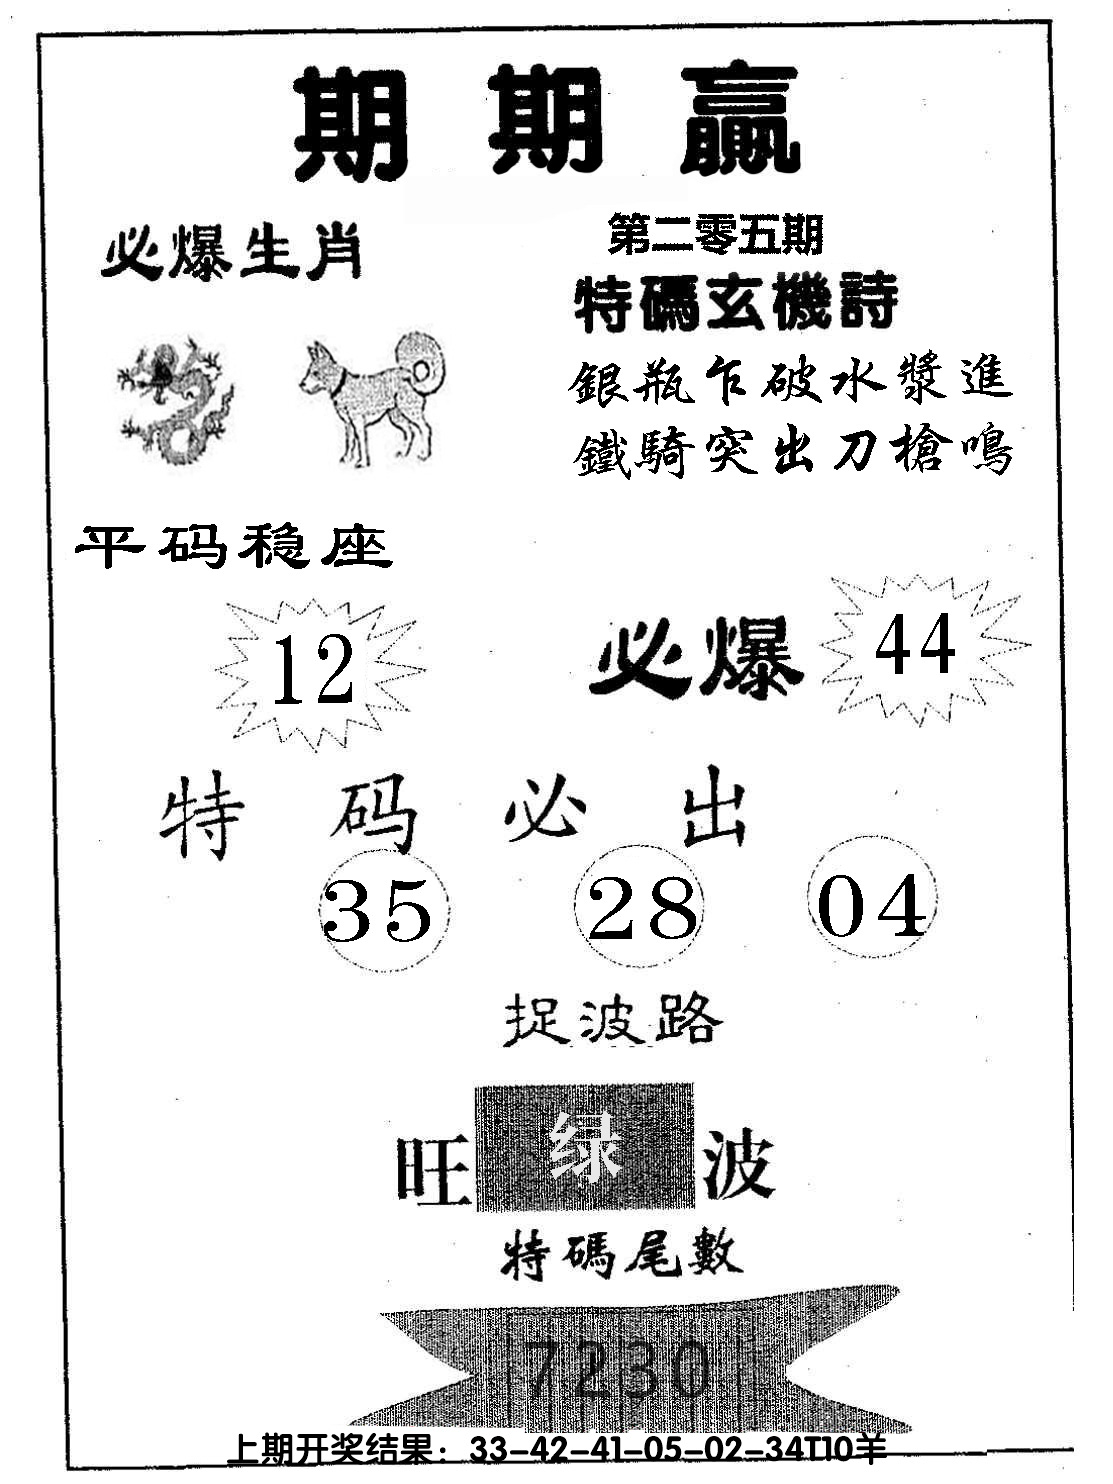 期期贏
第二零五期
必爆生肖
特碼玄機詩
銀瓶乍破水漿進
鐵騎突出刀槍鳴
平码稳座
12
必爆
44
特码必出
35 28 04
捉波路
旺绿波
特碼尾數
7230
上期开奖结果：33-42-41-05-02-34T10羊